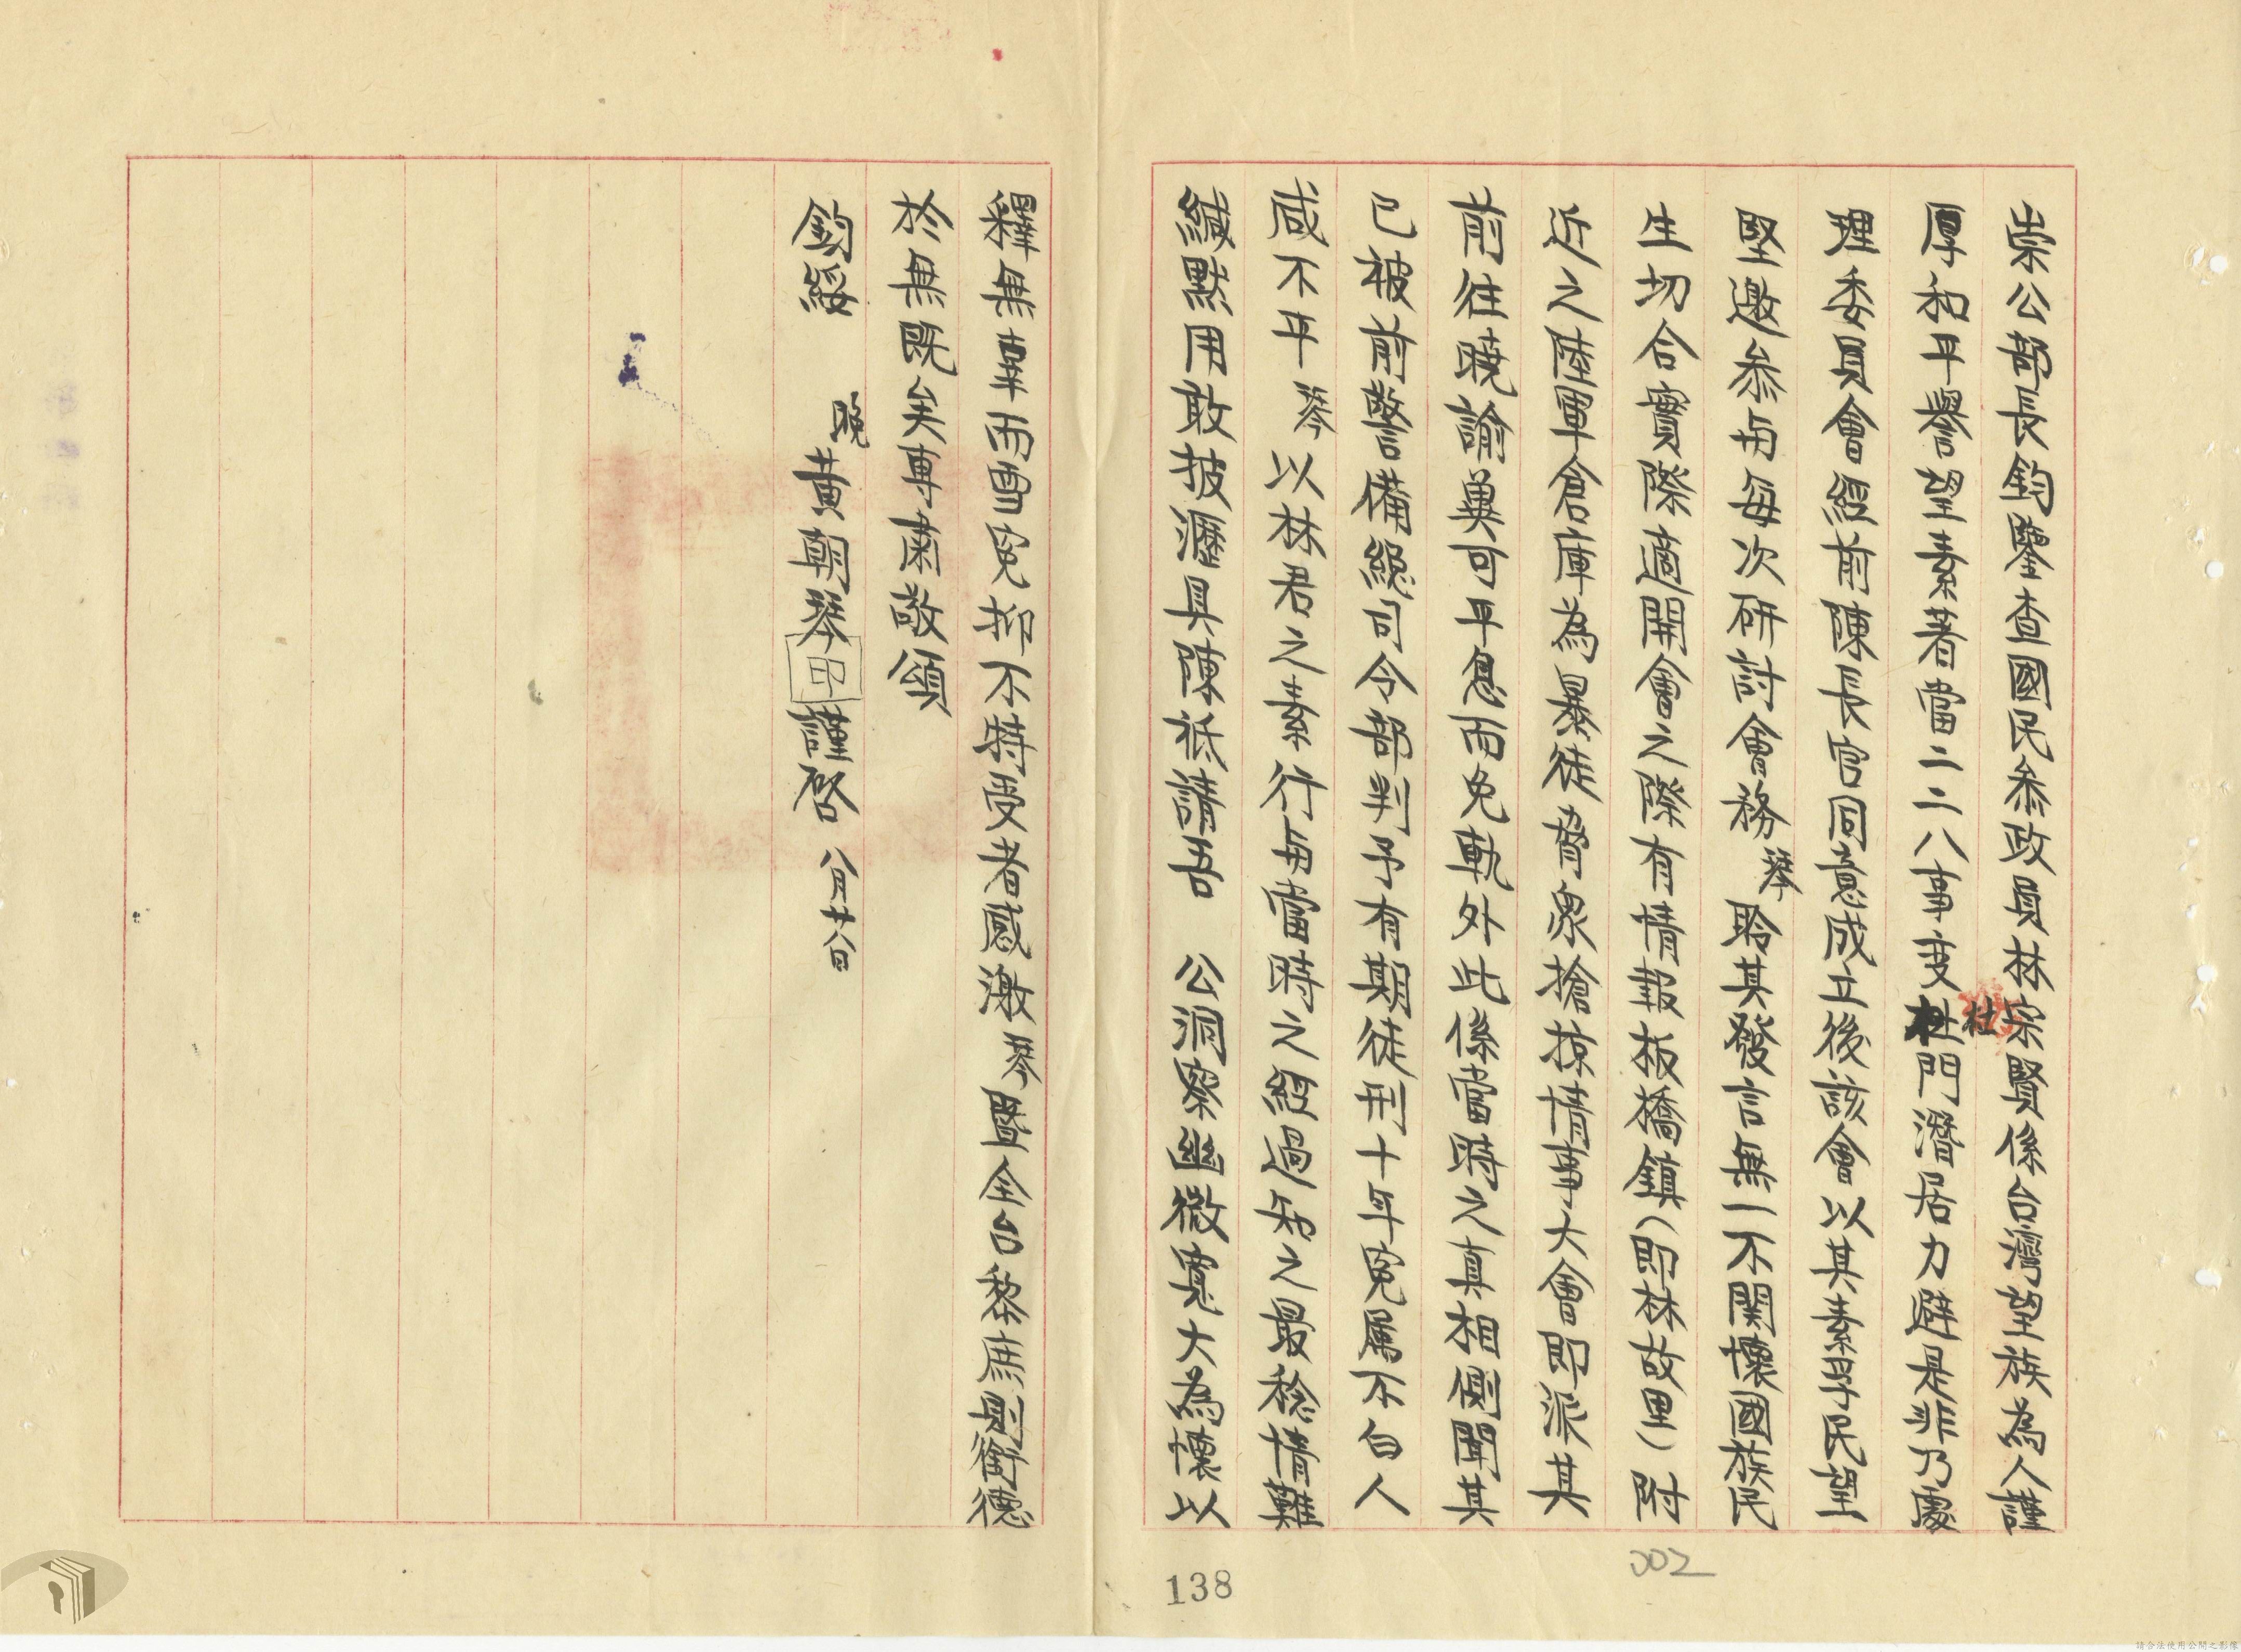 崇公部長鈞鑒查國民參政員林宗賢係台灣望族為人謹
厚和平譽望素著當二二八事變杜門潛居力避是非乃處
杜
理委員會經前陳長官同意成立後該會以其素孚民望
堅邀參与每次研討會務琴聆其發言無一不關懷國族民
生切合實際適開會之際有情報板橋鎮(即林故里)附
近之陸軍倉庫為暴徒脅眾搶掠情事大會即派其
前往曉諭冀可平息而免軌外此係當時之真相側聞其
已被前警備總司令部判予有期徒刑十年冤屬不白人
咸不平琴以林君之素行与當時之經過知之最稔情難
緘默用敢披瀝具陳祗請吾 公洞察幽微寬大為懷以
釋無辜而雪冤抑不特受者感激琴暨全台黎庶則銜德
於無既矣專肅敬頌
鈞綏 晚黃朝琴印謹啓 八月廿八日
138
002
請合法使用公開之影像